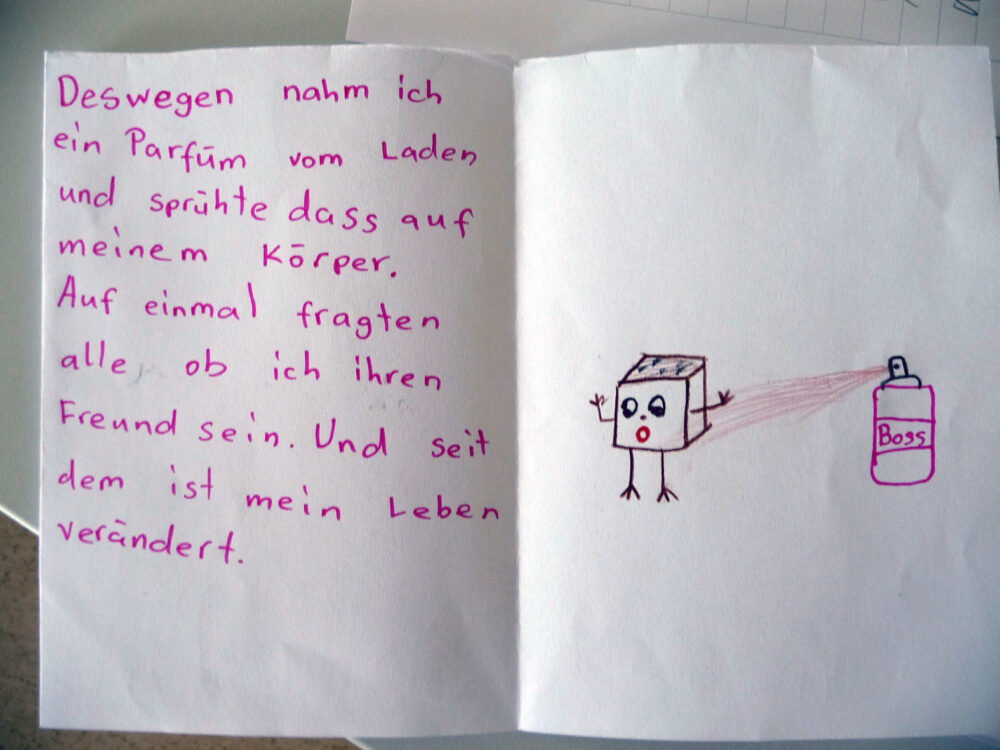 Deswegen nahm ich
ein Parfüm vom Laden
und sprühte dass auf
meinem Körper.
Auf einmal fragten
alle, ob ich ihren
Freund sein. Und seit
dem ist mein Leben
verändert.
Boss